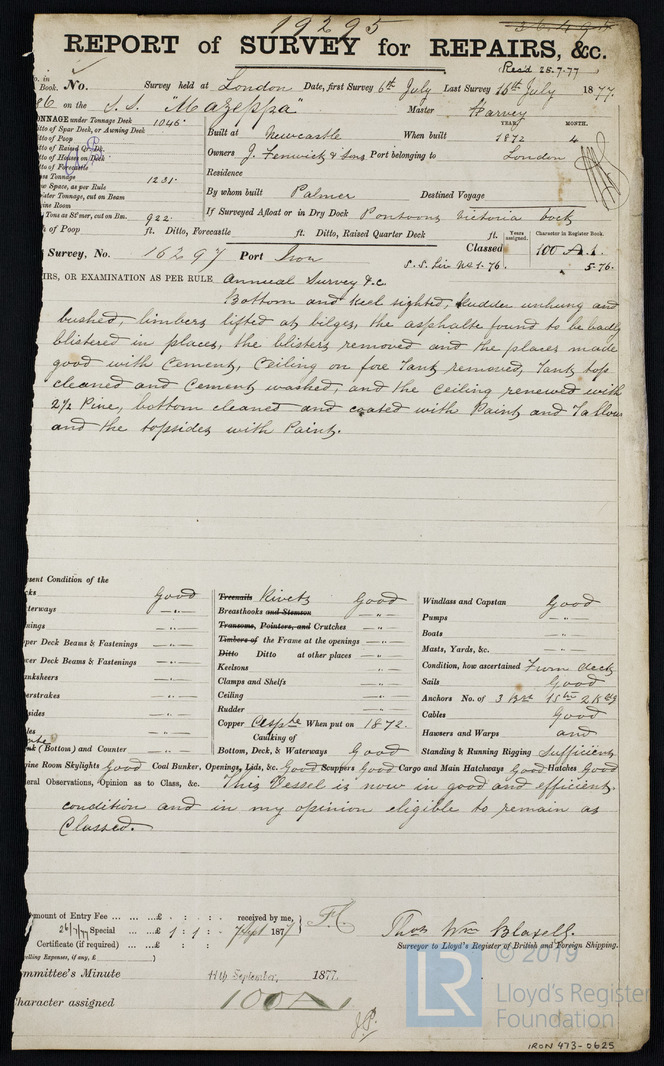 19295
36498
REPORT of SURVEY for REPAIRS, &c.
Rec'd 28.7.77
in Book. No. Survey held at London Date, first Survey 6th July Last Survey 16th July 1877.
86 on the S.S. "Mazeppa" Master Harvey
ONNAGE under Tonnage Deck 1045. YEAR. MONTH.
itto of Spar Deck, or Awning Deck Built at Newcastle When built 1872 4
itto of Poop
tto of Raised Qr. Dk. Owners J. Fenwick & Sons Port belonging to London
tto of Houses on Deck
tto of Forecastle Residence
ss Tonnage 1231.
w Space, as per Rule By whom built Palmer Destined Voyage
ister Tonnage, cut on Beam
gine Room
Tons as St'mer, cut on Bm. 922. If Surveyed Afloat or in Dry Dock Pontoons Victoria Dock
of Poop ft. Ditto, Forecastle ft. Ditto, Raised Quarter Deck ft. Years assigned. Character in Register Book.
Survey, No. 16297 Port Iron Classed 100 A.1.
S.S. Lir No 1.76. 5.76.
IRS, OR EXAMINATION AS PER RULE Annual Survey &c
Bottom and keel sighted, Rudder unhung and
bushed, limbers lifted at bilges, the asphalte found to be badly
blistered in places, the blisters removed and the places made
good with Cement, Ceiling on fore Tank removed, Tank top
cleaned and Cement washed, and the Ceiling renewed with
2½ Pine, bottom cleaned and coated with Paint and Tallow
and the topsides with Paint.
esent Condition of the
cks Good Treenails Rivets Good Windlass and Capstan Good
terways — " — Breasthooks and Stemson — " — Pumps — " —
mings — " — Transoms, Pointers, and Crutches — " — Boats — " —
per Deck Beams & Fastenings — " — Timbers of the Frame at the openings — " — Masts, Yards, &c. — " —
wer Deck Beams & Fastenings — " — Ditto Ditto at other places — " — Condition, how ascertained From deck
anksheers — " — Keelsons — " — Sails Good
erstrakes — " — Clamps and Shelfs — " — Anchors No. of 3 Bre 1 Stm 2 Kdg
sides — " — Ceiling — " — Cables Good
les — " — Rudder — " — Hawsers and Warps and
Copper When put on 1872.
nk (Bottom) and Counter — " — Caulking of Bottom, Deck, & Waterways Good Standing & Running Rigging Sufficient
gine Room Skylights Good Coal Bunker, Openings, Lids, &c. Good Scuppers Good Cargo and Main Hatchways Good Hatches Good
eral Observations, Opinion as to Class, &c. This Vessel is now in good and efficient
condition and in my opinion eligible to remain as
Classed.
mount of Entry Fee ... ... ...£ : : received by me,
26/7/77 Special ... ...£ 1 : 1 : - 7 Sept 1877
Certificate (if required) ... ...£ : :
elling Expenses, if any, £ )
Thos Wm Blaxell.
Surveyor to Lloyd's Register of British and Foreign Shipping.
ommittee's Minute 11th September, 1877.
haracter assigned 100 A 1
© 2019
LR
Lloyd's Register
Foundation
IRON 473-0625